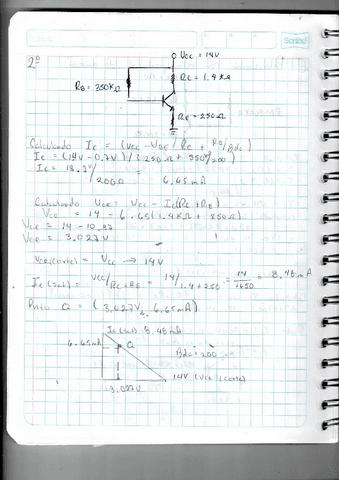 2º
Vcc = 14V
Rc = 1.4 KΩ
RB = 350KΩ
RE = 250Ω
Calculando Ic = (Vcc - VBE / RE + RB/Bdc)
Ic = (14V - 0.7V) / (250Ω + 350K/200)
Ic = 13.3V/2000 = 6.65 mA
Calculando Vce = Vcc - Ic(Rc + RE)
Vce = 14 - 6.65(1.4KΩ + 250Ω)
Vce = 14 - 10.97
Vce = 3.027V
Vce(corte) = Vcc → 14V
Ic (sat) = Vcc/Rc+RE = 14/1.4+250 = 14/1650 = 8.48 mA
Punto Q = (3.027V, 6.65 mA)
Ic (sat) 8.48mA
6.65mA Q
Bdc = 200
14V (Vce (corte)
3.027V